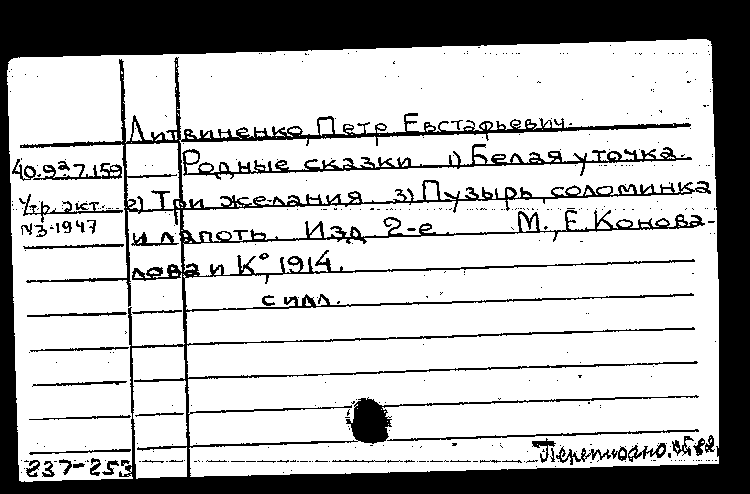 Литвиненко, Петр Евстафьевич.
40.937.159 Родные сказки. 1) Белая уточка.
Утр. акт. 2) Три желания. 3) Пузырь, соломинка
N3-1947 и лапоть. Изд. 2-е. М., Е. Конова-
лова и К°, 1914.
с илл.
237-253 Переписано.